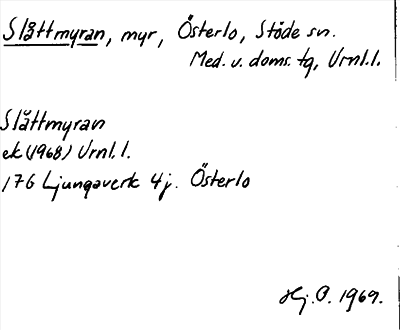 Slåttmyran, myr, Österlo, Stöde sn.
Med. v. doms. tg, Urnl.l.
Slåttmyran
ek (1968) Urnl.l.
176 Ljungaverk 4j. Österlo
Hj. O. 1969.